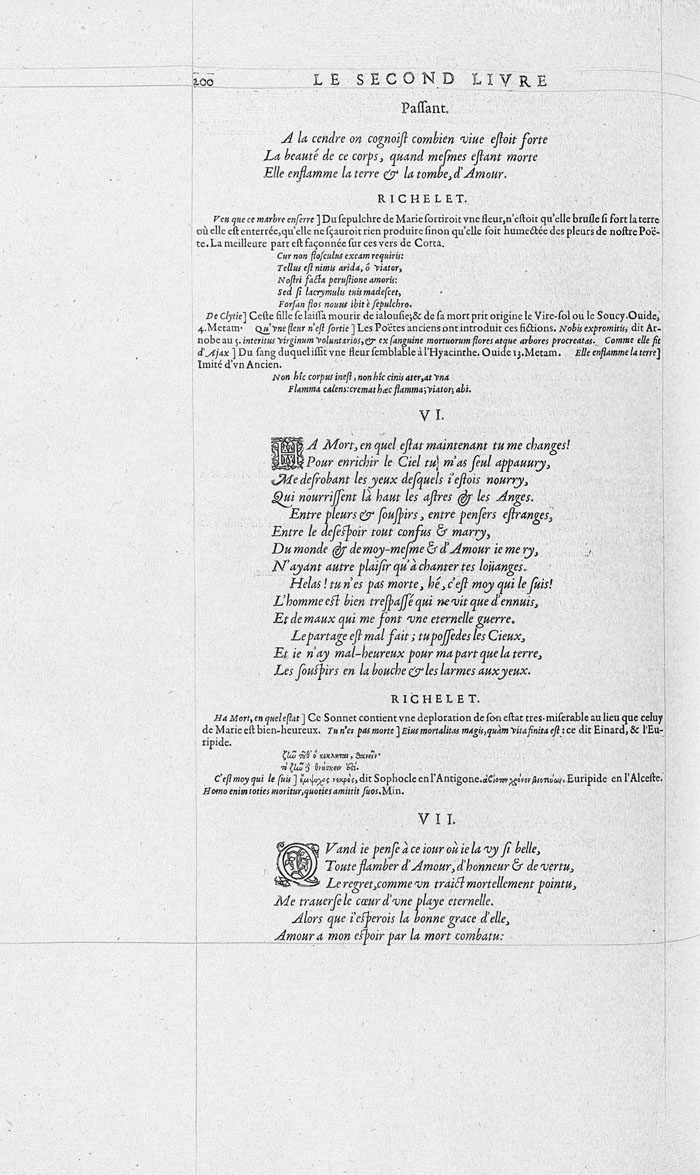 200 LE SECOND LIVRE
Passant.
A la cendre on cognoist combien viue estoit forte
La beauté de ce corps, quand mesmes estant morte
Elle enflamme la terre & la tombe, d'Amour.
RICHELET.
Ven que ce marbre enserre ] Du sepulchre de Marie sortiroit vne fleur, n'estoit qu'elle brusle si fort la terre
où elle est enterrée, qu'elle ne sçauroit rien produire sinon qu'elle soit humectée des pleurs de nostre Poë-
te. La meilleure part est façonnée sur ces vers de Cotta.
Cur non flosculus excam requiris:
Tellus est nimis arida, ô viator,
Nostri facta perustione amoris:
Sed si lacrymulis tuis madescet,
Forsan flos nouus ibit è sepulchro.
De Clytie ] Ceste fille se laissa mourir de ialousie; & de sa mort prit origine le Vire-sol ou le Soucy. Ouide,
4. Metam. Qu'vne fleur n'est sortie ] Les Poëtes anciens ont introduit ces fictions. Nobis expromitis, dit Ar-
nobe au 5. interitus virginum voluntarios, & ex sanguine mortuorum flores atque arbores procreatas. Comme elle fit
d'Ajax ] Du sang duquel issit vne fleur semblable à l'Hyacinthe. Ouide 13. Metam. Elle enflamme la terre ]
Imité d'vn Ancien.
Non hîc corpus inest, non hîc cinis ater, at vna
Flamma calens: cremat hæc flamma; viator; abi.
VI.
HA Mort, en quel estat maintenant tu me changes!
Pour enrichir le Ciel tu m'as seul appauury,
Me desrobant les yeux desquels i'estois nourry,
Qui nourrissent là haut les astres & les Anges.
Entre pleurs & souspirs, entre pensers estranges,
Entre le desespoir tout confus & marry,
Du monde & de moy-mesme & d'Amour ie me ry,
N'ayant autre plaisir qu'à chanter tes loüanges.
Helas! tu n'es pas morte, hé, c'est moy qui le suis!
L'homme est bien trespassé qui ne vit que d'ennuis,
Et de maux qui me font vne eternelle guerre.
Le partage est mal fait; tu possedes les Cieux,
Et ie n'ay mal-heureux pour ma part que la terre,
Les souspirs en la bouche & les larmes aux yeux.
RICHELET.
Ha Mort, en quel estat ] Ce Sonnet contient vne deploration de son estat tres-miserable au lieu que celuy
de Marie est bien-heureux. Tu n'es pas morte ] Eius mortalitas magis, quàm vita finita est: ce dit Einard, & l'Eu-
ripide.
C'est moy qui le suis ] ἔμψυχος νεκρός, dit Sophocle en l'Antigone. Euripide en l'Alceste.
Homo enim toties moritur, quoties amittit suos. Min.
VII.
QVand ie pense à ce iour où ie la vy si belle,
Toute flamber d'Amour, d'honneur & de vertu,
Le regret, comme vn traict mortellement pointu,
Me trauerse le cœur d'vne playe eternelle.
Alors que i'esperois la bonne grace d'elle,
Amour a mon espoir par la mort combatu: